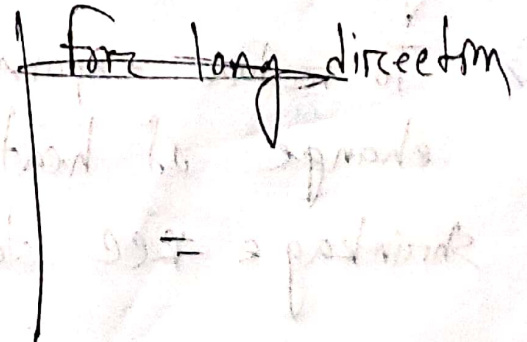 for long direction
=